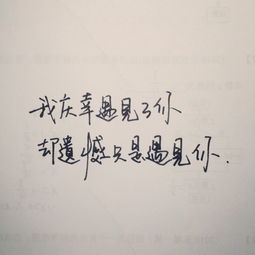 我庆幸遇見了你
却遺憾只是遇見你.